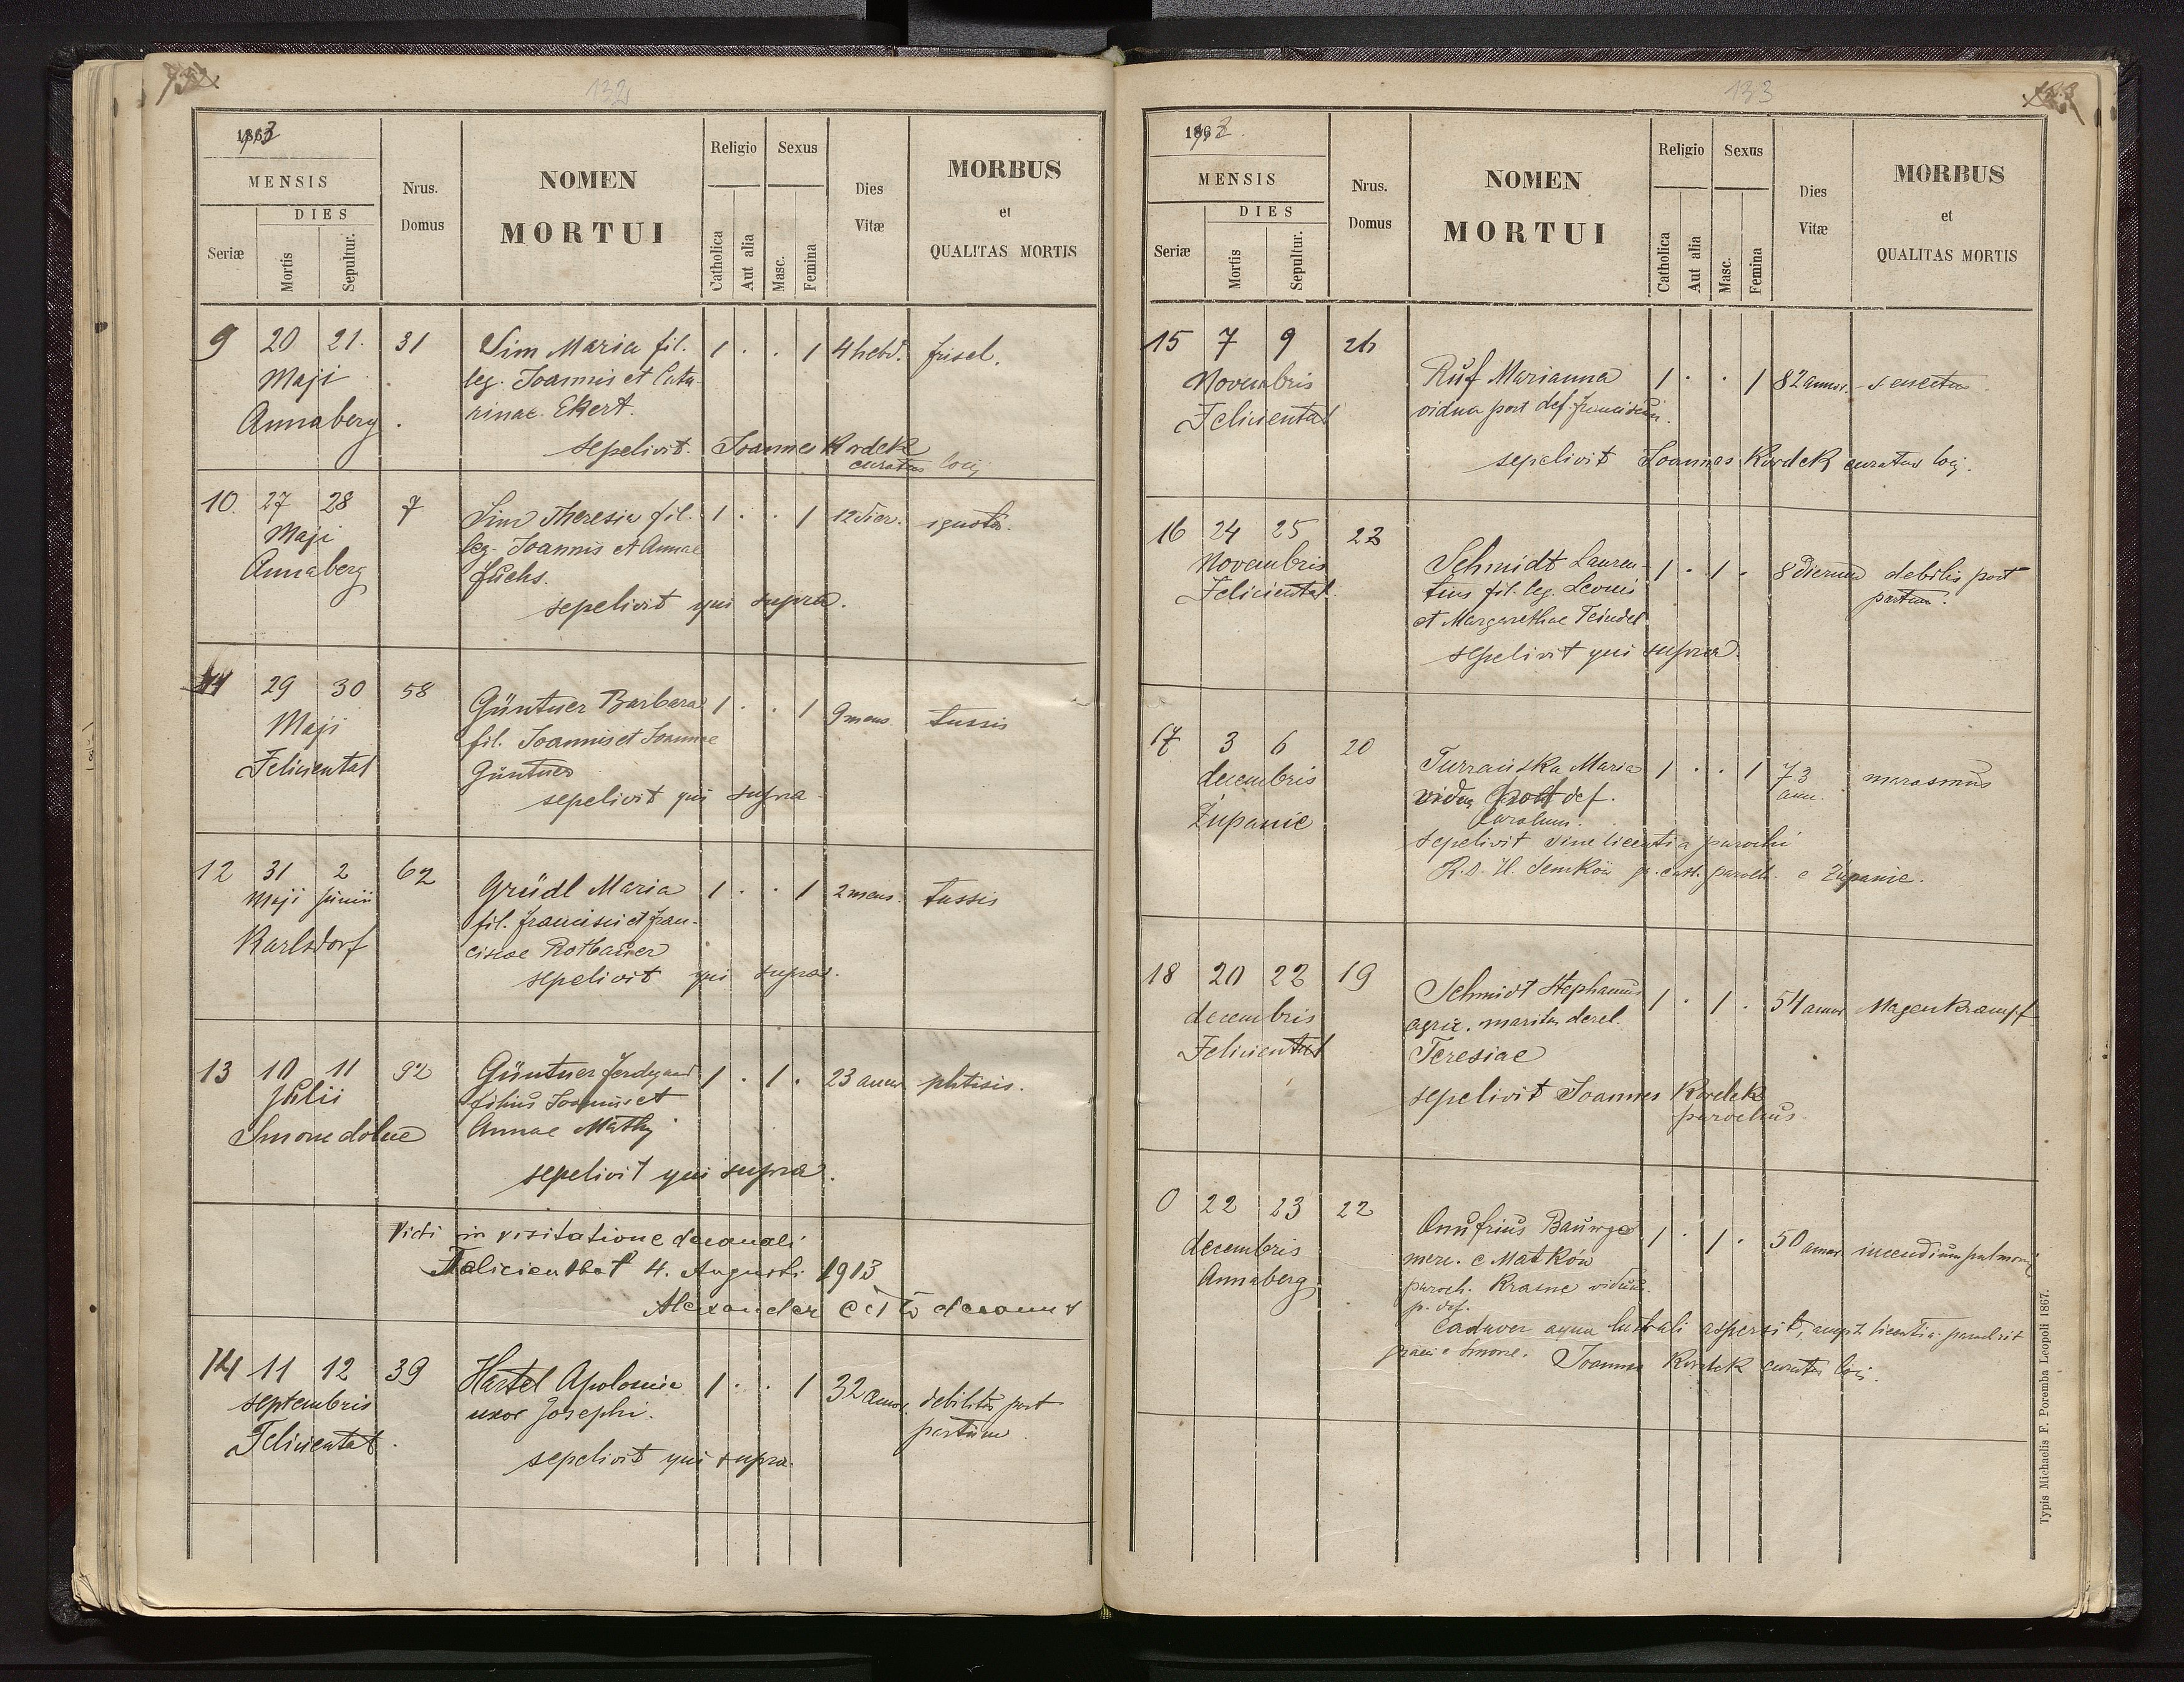 132
1913
MENSIS
DIES
Seriæ
Mortis
Sepultur.
Nrus.
Domus
NOMEN
MORTUI
Religio
Catholica
Aut alia
Sexus
Masc.
Femina
Dies
Vitæ
MORBUS
et
QUALITAS MORTIS
9 20 21. 31 Sim Maria fil. 1 . . 1 4 hebd. frisel.
Maji leg. Joannis et Cata-
Annaberg. rinae Ekert.
sepelivit. Joannes Kordek
curatus loci
10. 27 28 7 Sim Theresia fil. 1 . . 1 12 dier. ignota.
Maji leg. Joannis et Annae
Annaberg Fuchs.
sepelivit qui supra.
11 29 30 58 Güntner Barbara 1 . . 1 9 mens. tussis
Maji fil. Joannis et Joannae
Felicientat Güntner
sepelivit qui supra
12 31 2 62 Grüdl Maria 1 . . 1 2 mens. tussis
Maji Junii fil. Francisci et Fran-
Karlsdorf ciscae Rotbauer
sepelivit qui supra.
13 10 11 92 Güntner Ferdynand 1 . 1 . 23 annor phtisis.
Julii filius Joannis et
Smorze dolne Annae Mathy
sepelivit qui supra.
Vidi in visitatione decanali
Felicienthal 4. Augusti 1913
Alexander decanus
14 11 12 39 Hartel Apolonia 1 . . 1 32 annor. debilitas post
septembris uxor Josephi. partum.
Felicientat.
sepelivit qui supra.
133
MENSIS
DIES
Seriæ
Mortis
Sepultur.
Nrus.
Domus
NOMEN
MORTUI
Religio
Catholica
Aut alia
Sexus
Masc.
Femina
Dies
Vitæ
MORBUS
et
QUALITAS MORTIS
15 7 9 26
Novembris Ruf Marianna 1 . . 1 82 annor. senectus
Felicientat vidua post def. Franciscum.
sepelivit Joannes Kordek curatus loci.
16 24 25 22
Novembris Schmidt Lauren- 1 . 1 . 8 dierum debilis post
Felicientat. tius fil. leg. Leonis partum.
et Margarethae Teindel
sepelivit qui supra.
17 3 6 20 Turrańska Maria 1 . . 1 73 marasmus
decembris vidua post def. ann.
Żupanie Carolum.
sepelivit sine licentia parochi
R. D. H. Semków gr. cath. paroch. e Żupanie.
18 20 22 19 Schmidt Stephanus 1 . 1 . 54 annor Magenkrampf
decembris agric. maritus derel.
Felicientat Teresiae
sepelivit Joannes Kordek
parochus.
0 22 23 22 Onufrius 1 . 1 . 50 annor incendium pulmonis
decembris merc. e Matków
Annaberg paroch. Krasne viduus
p. def.
Cadaver aqua lustrali aspersit, licentia
e Smorze. Joannes Kordek curatus loci.
Typis Michaelis F. Poremba Leopoli 1867.